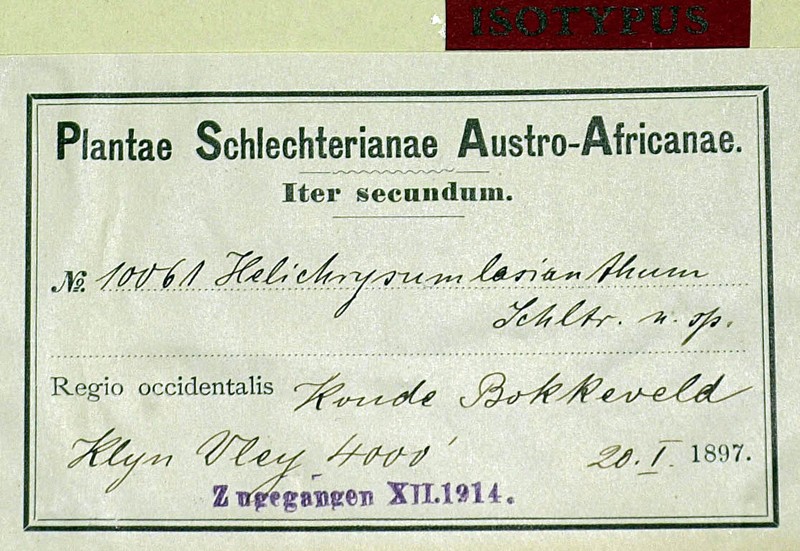 ISOTYPUS
Plantae Schlechterianae Austro-Africanae.
Iter secundum.
No. 10061 Helichrysum lasianthum
Schltr. n. sp.
Regio occidentalis Koude Bokkeveld
Klyn Vley 4000' 20. I. 1897.
Zugegangen XII.1914.